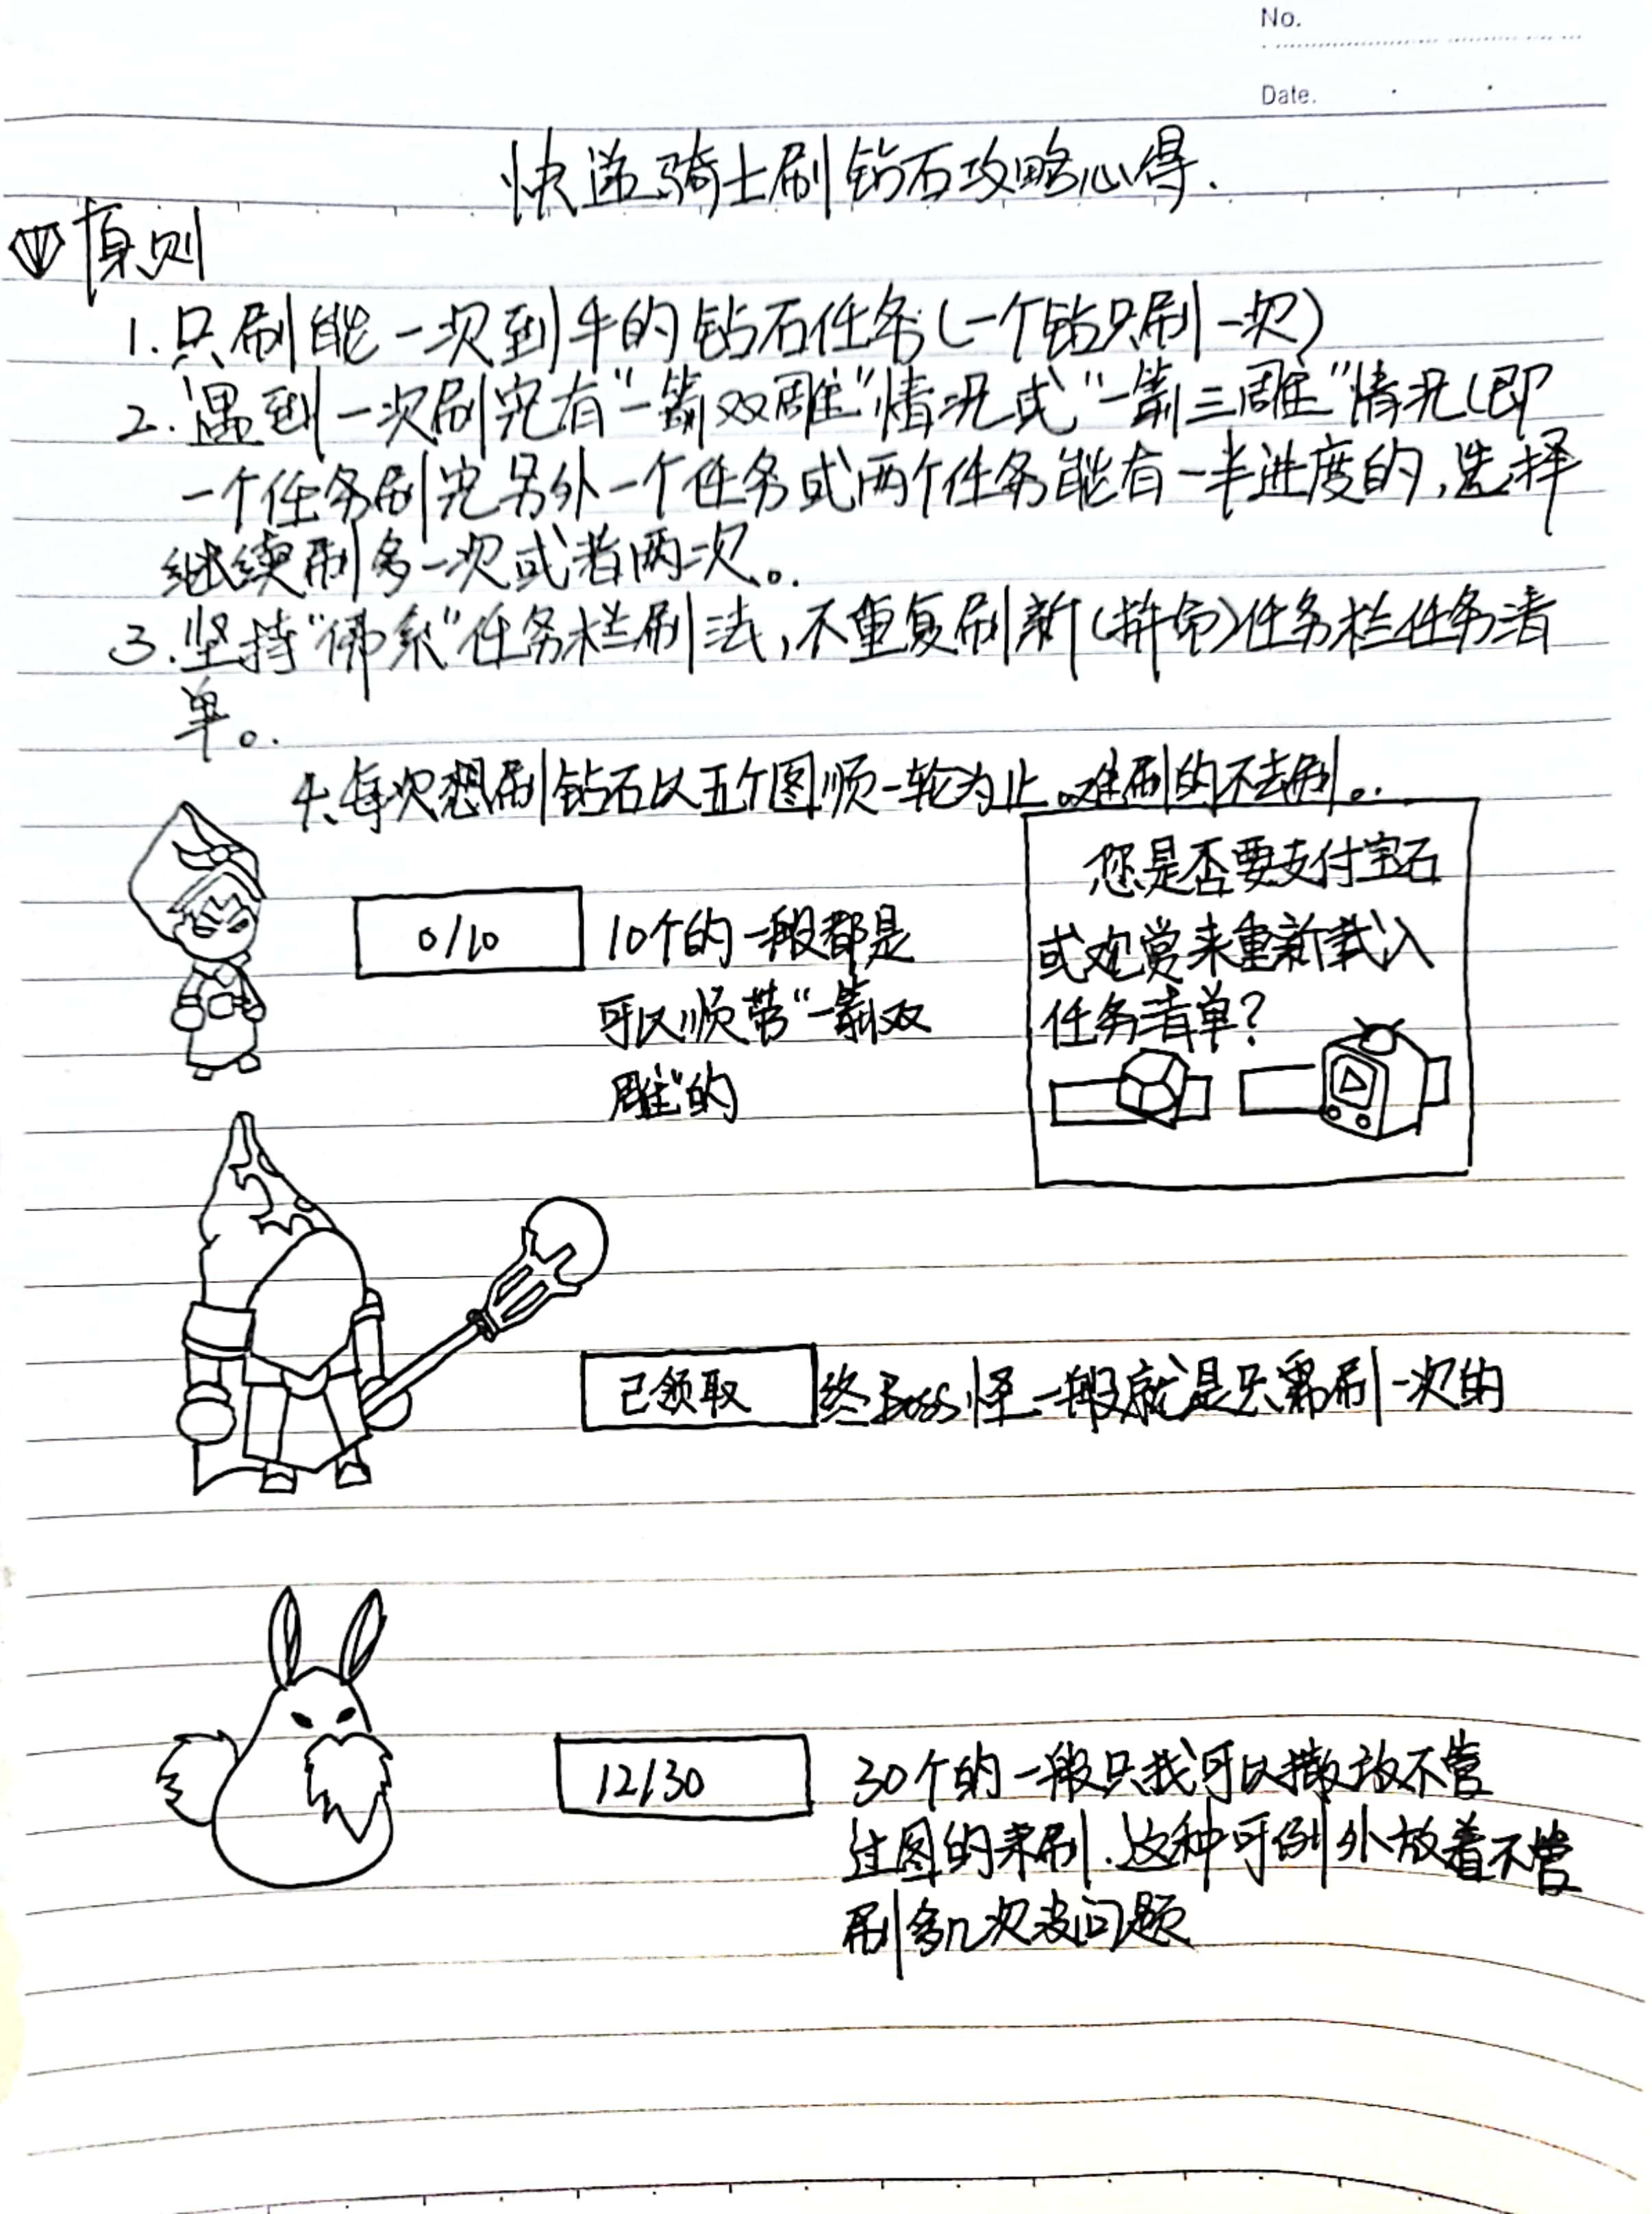 No.
Date.
快递骑士刷钻石攻略心得.
原则
1.只刷能一次到手的钻石任务(一个钻只刷一次)
2.遇到一次刷完有"一箭双雕"情况或"一箭三雕"情况(即
一个任务刷完另外一个任务或两个任务能有一半进度的,选择
继续刷多一次或者两次。.
3.坚持"佛系"任务栏刷法,不重复刷新(拼命)任务栏任务清
单。.
4.每次想刷钻石以五个图顺一轮为止。难刷的不去刷。.
您是否要支付宝石
或观赏来重新载入
任务清单?
0/10
10个的一般都是
可以顺带"一箭双
雕"的
已领取
终Boss怪一般就是只需刷一次的
12/30
30个的一般只找可以撒放不管
过图的来刷.这种可例外放着不管
刷多几次没问题